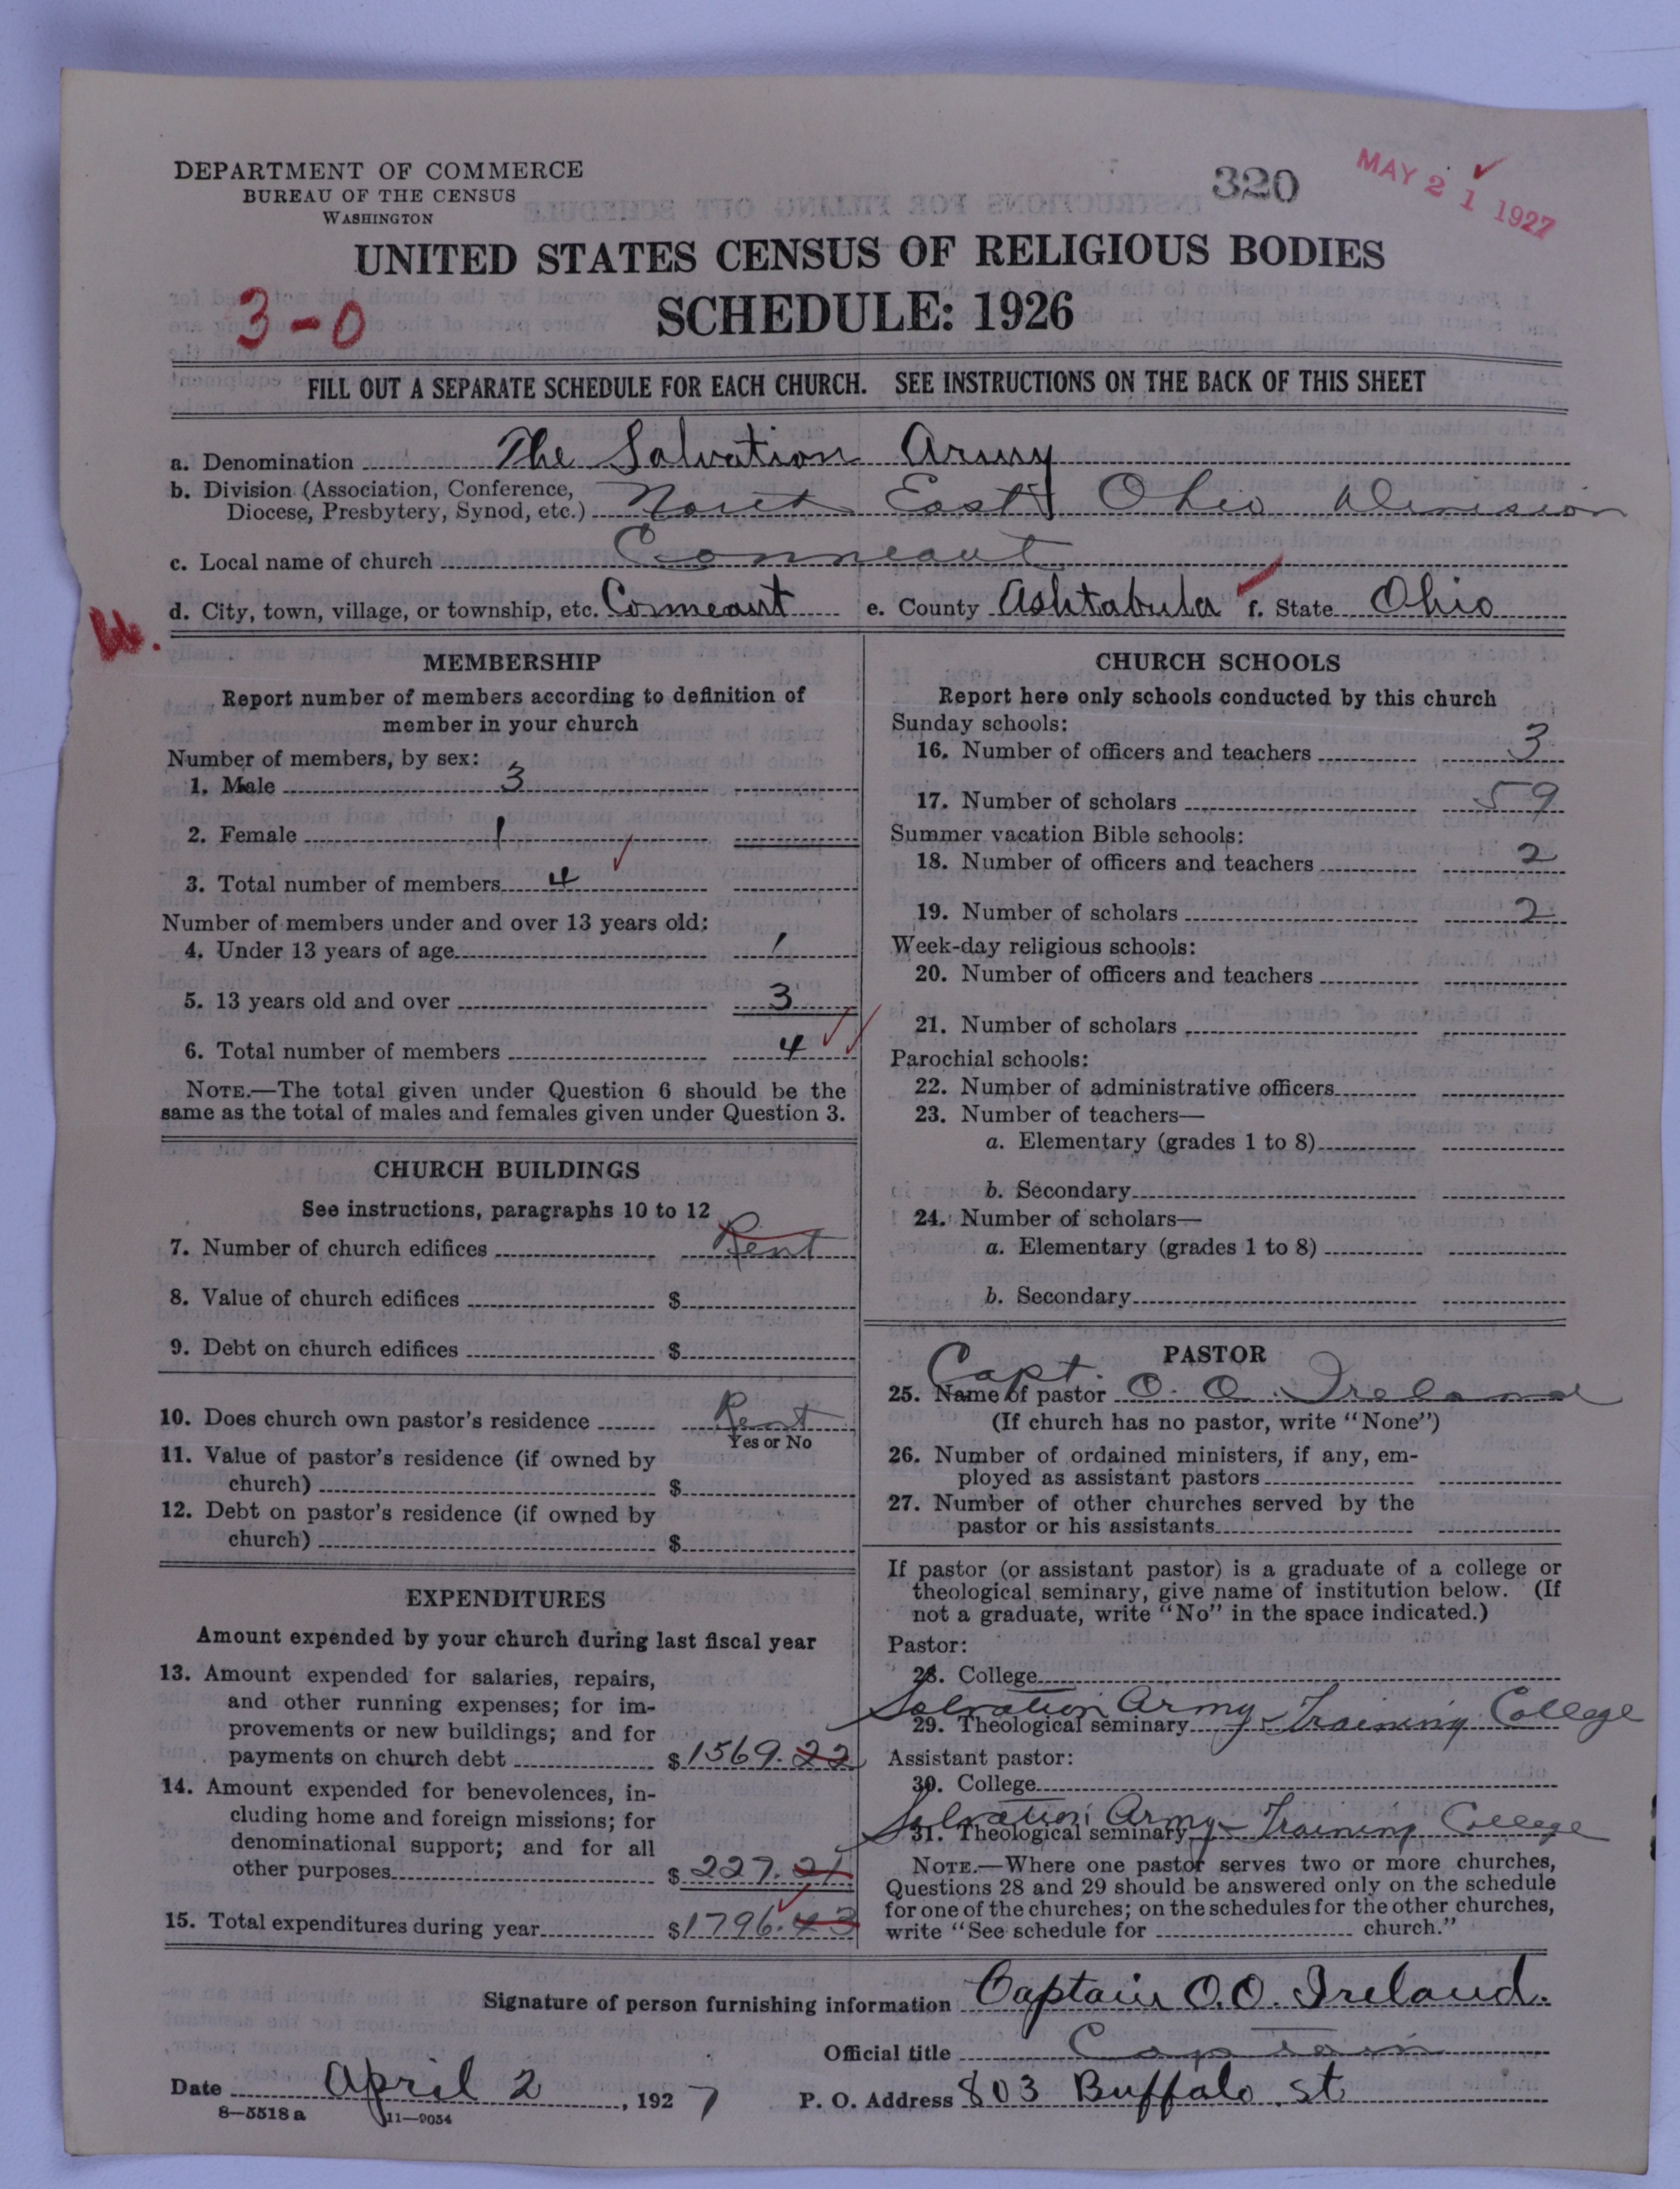 DEPARTMENT OF COMMERCE
BUREAU OF THE CENSUS
WASHINGTON
320
MAY 21 1927
UNITED STATES CENSUS OF RELIGIOUS BODIES
SCHEDULE: 1926
3-0
FILL OUT A SEPARATE SCHEDULE FOR EACH CHURCH. SEE INSTRUCTIONS ON THE BACK OF THIS SHEET
a. Denomination The Salvation Army
b. Division (Association, Conference,
Diocese, Presbytery, Synod, etc.) North East Ohio Division
c. Local name of church Conneaut
d. City, town, village, or township, etc. Conneaut e. County Ashtabula f. State Ohio
MEMBERSHIP
Report number of members according to definition of
member in your church
Number of members, by sex:
1. Male 3
2. Female 1
3. Total number of members 4
Number of members under and over 13 years old:
4. Under 13 years of age 1
5. 13 years old and over 3
6. Total number of members 4
NOTE.—The total given under Question 6 should be the
same as the total of males and females given under Question 3.
CHURCH BUILDINGS
See instructions, paragraphs 10 to 12
7. Number of church edifices Rent
8. Value of church edifices $
9. Debt on church edifices $
10. Does church own pastor's residence Rent
Yes or No
11. Value of pastor's residence (if owned by
church) $
12. Debt on pastor's residence (if owned by
church) $
EXPENDITURES
Amount expended by your church during last fiscal year
13. Amount expended for salaries, repairs,
and other running expenses; for im-
provements or new buildings; and for
payments on church debt $1569.22
14. Amount expended for benevolences, in-
cluding home and foreign missions; for
denominational support; and for all
other purposes $227.21
15. Total expenditures during year $1796.43
CHURCH SCHOOLS
Report here only schools conducted by this church
Sunday schools:
16. Number of officers and teachers 3
17. Number of scholars 59
Summer vacation Bible schools:
18. Number of officers and teachers 2
19. Number of scholars 2
Week-day religious schools:
20. Number of officers and teachers
21. Number of scholars
Parochial schools:
22. Number of administrative officers
23. Number of teachers—
a. Elementary (grades 1 to 8)
b. Secondary
24. Number of scholars—
a. Elementary (grades 1 to 8)
b. Secondary
PASTOR
25. Name of pastor Capt. O. O. Ireland
(If church has no pastor, write "None")
26. Number of ordained ministers, if any, em-
ployed as assistant pastors
27. Number of other churches served by the
pastor or his assistants
If pastor (or assistant pastor) is a graduate of a college or
theological seminary, give name of institution below. (If
not a graduate, write "No" in the space indicated.)
Pastor:
28. College
29. Theological seminary Salvation Army Training College
Assistant pastor:
30. College
31. Theological seminary Salvation Army Training College
NOTE.—Where one pastor serves two or more churches,
Questions 28 and 29 should be answered only on the schedule
for one of the churches; on the schedules for the other churches,
write "See schedule for church."
Signature of person furnishing information Captain O.O. Ireland.
Official title Captain
Date April 2, 1927 P. O. Address 803 Buffalo st
8—5518a 11—9054